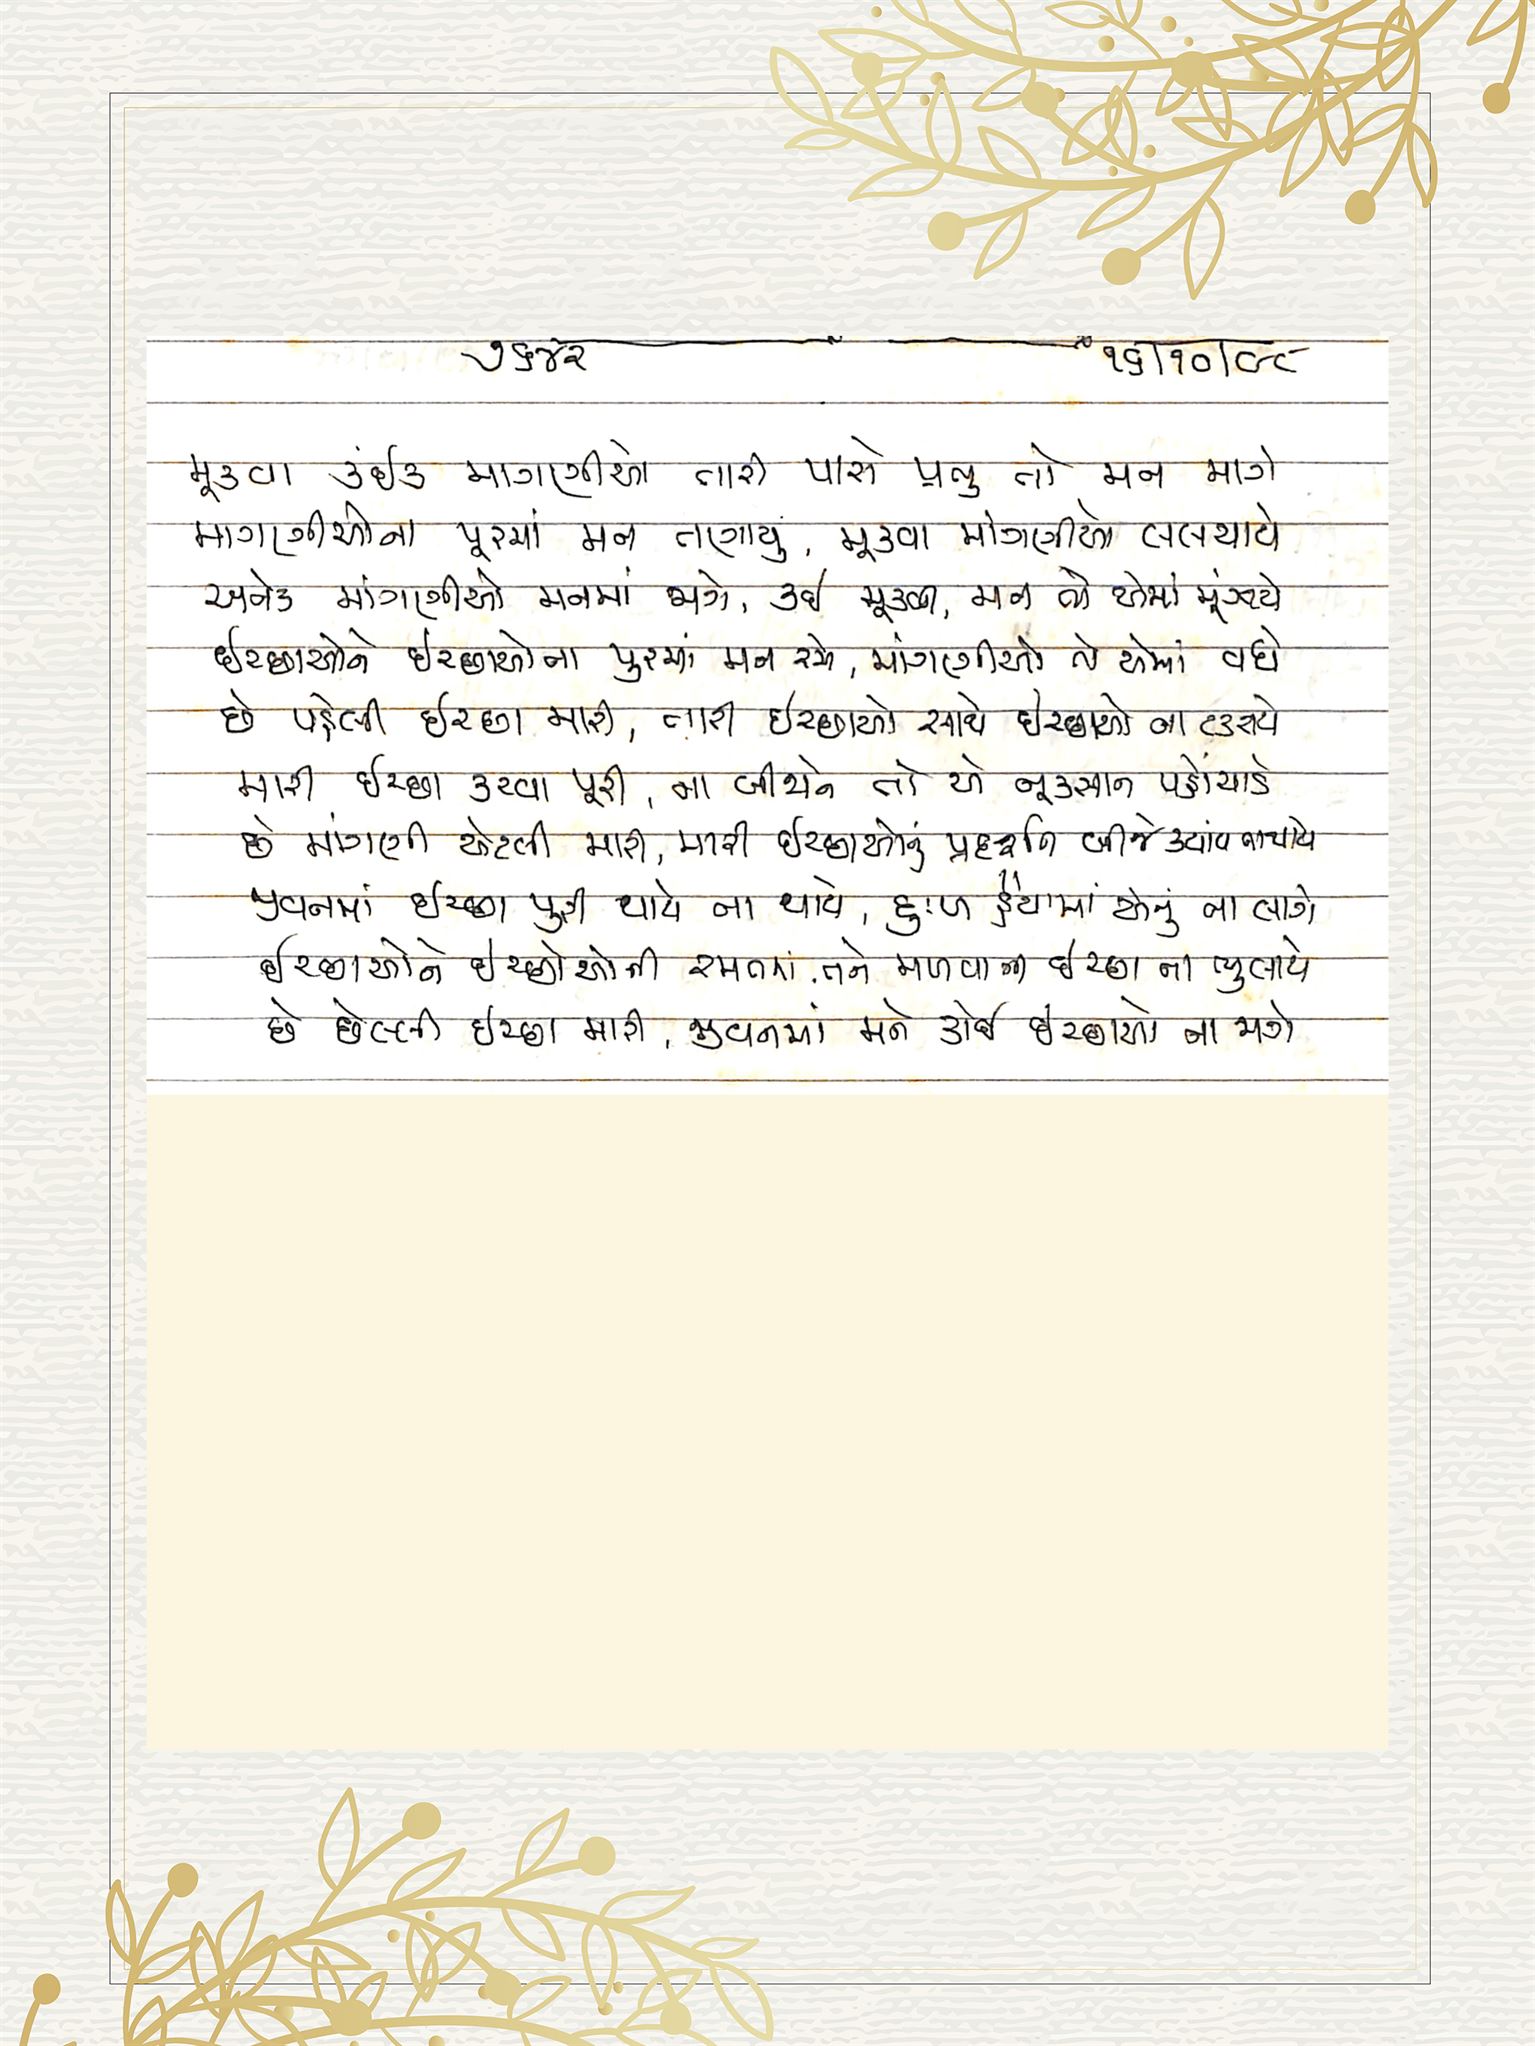 ૭૬૪૨ ૧૬/૧૦/૯૮
મૂકવા કંઈક માગણીઓ તારી પાસે પ્રભુ તો મન માગે
માગણીઓના પૂરમાં મન તણાયું, મૂકવા માંગણીઓ લલચાયે
અનેક માંગણીઓ મનમાં જાગે, કઈ મૂકવી, મન તો એમાં મૂંઝાયે
ઈચ્છાઓને ઈચ્છાઓના પુરમાં મન રમે, માંગણીઓ તો એમાં વધે
છે પહેલી ઈચ્છા મારી, તારી ઈચ્છાઓ સાથે ઈચ્છાઓ ના ટકરાયે
મારી ઈચ્છા કરવા પૂરી, ના બીજાને તો એ નૂકસાન પહોંચાડે
છે માંગણી એટલી મારી, મારી ઈચ્છાઓનું પ્રદર્શન બીજે ક્યાંય ના થાયે
જીવનમાં ઈચ્છા પુરી થાયે ના થાયે, દુઃખ હૈયામાં એનું ના લાગે
ઈચ્છાઓને ઈચ્છાઓની રમતમાં, તને મળવાની ઈચ્છા ના ભુલાયે
છે છેલ્લી ઈચ્છા મારી, જીવનમાં મને કોઈ ઈચ્છાઓ ના જાગે